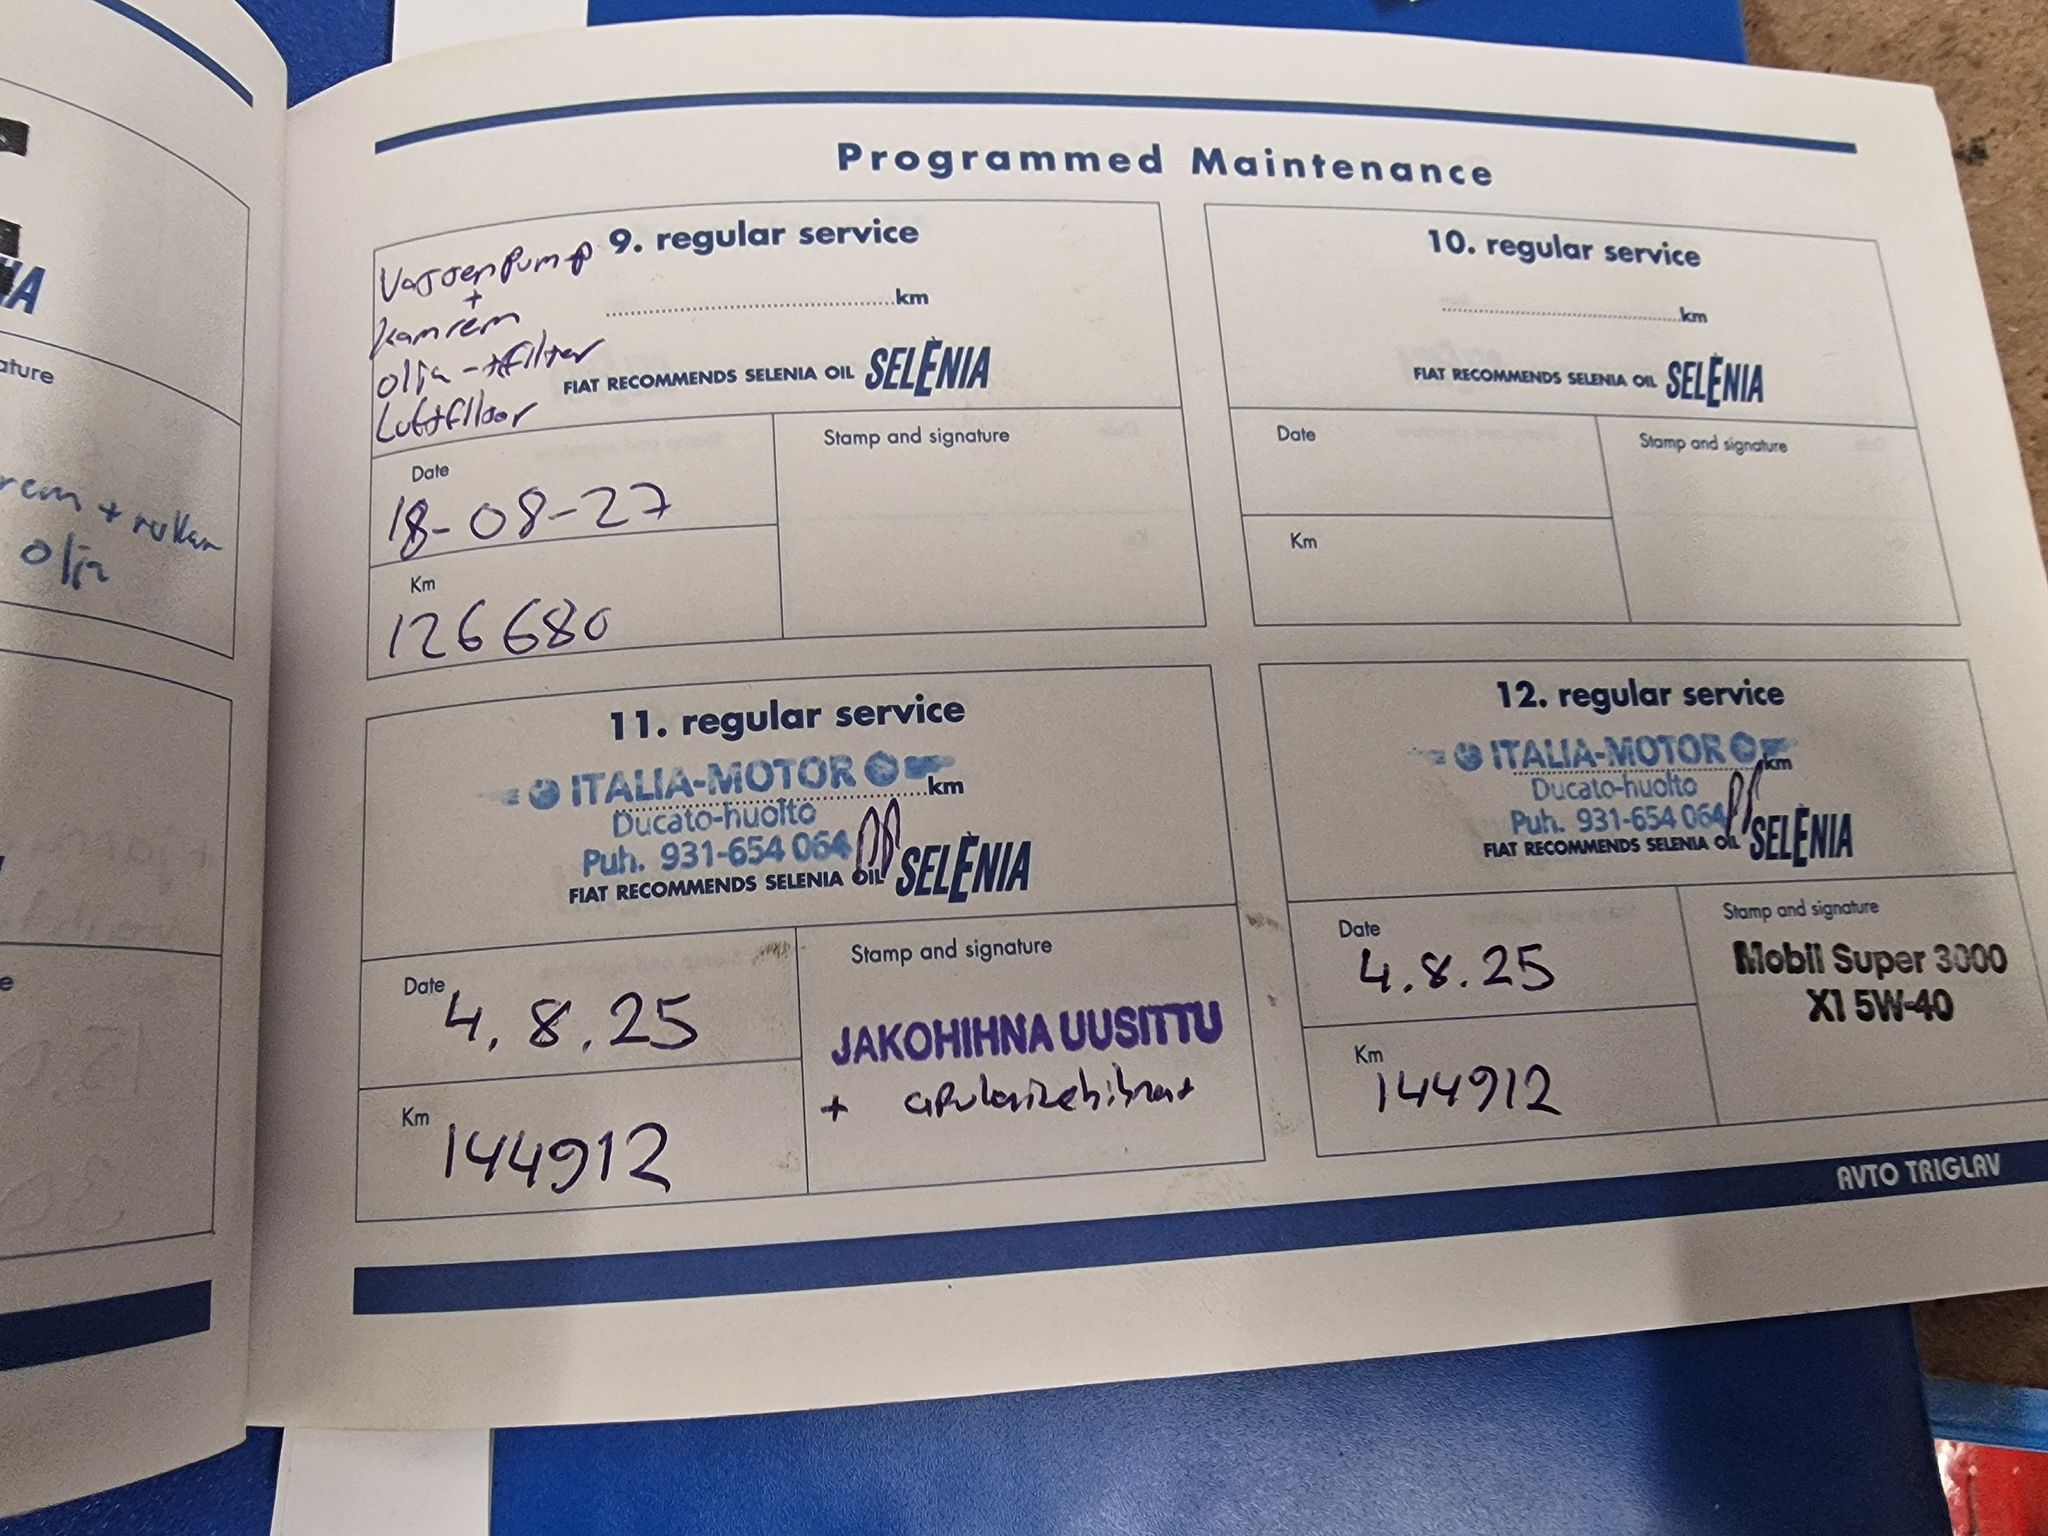 ature
+ rullar
olja
Programmed Maintenance
9. regular service
Vattenpump
+
kamrem
olja - +filter
Luftfilter
km
FIAT RECOMMENDS SELENIA OIL SELÈNIA
Date
18-08-27
Km
126680
Stamp and signature
10. regular service
km
FIAT RECOMMENDS SELENIA OIL SELÈNIA
Date
Km
Stamp and signature
11. regular service
ITALIA-MOTOR
km
Ducato-huolto
Puh. 931-654 064
FIAT RECOMMENDS SELENIA OIL SELÈNIA
Date
4.8.25
Km
144912
Stamp and signature
JAKOHIHNA UUSITTU
+ apulaitehihnat
12. regular service
ITALIA-MOTOR
km
Ducato-huolto
Puh. 931-654 064
FIAT RECOMMENDS SELENIA OIL SELÈNIA
Date
4.8.25
Km
144912
Stamp and signature
Mobil Super 3000
X1 5W-40
AVTO TRIGLAV